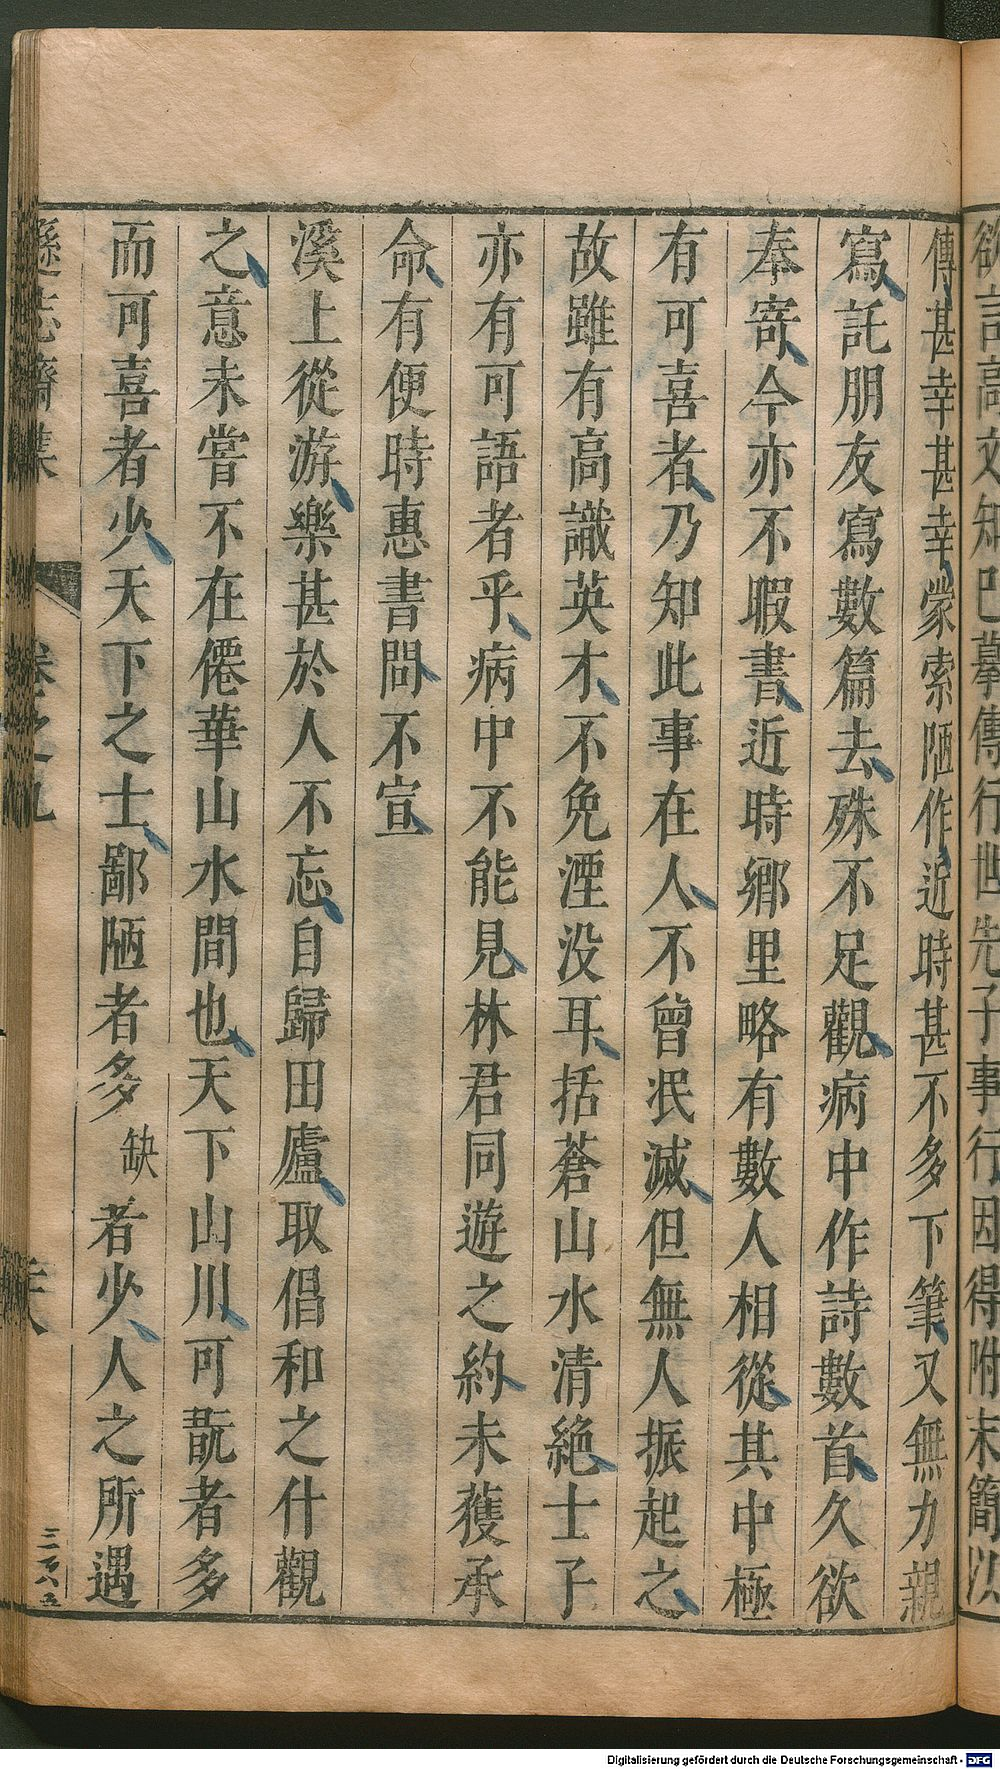 欲記高文知已摹傳行世先子事行因得附末簡以
傳甚幸甚幸蒙索陋作近時甚不多下筆又無力親
寫託朋友寫數篇去殊不足觀病中作詩數首久欲
奉寄今亦不暇書近時鄉里略有數人相從其中極
有可喜者乃知此事在人不曾泯滅但無人振起之
故雖有高識英才不免湮没耳括蒼山水清絶士子
亦有可語者乎病中不能見林君同遊之約未獲承
命有便時惠書問不宣
溪上從游樂甚於人不忘自歸田廬取倡和之什觀
之意未嘗不在僊華山水間也天下山川可翫者多
而可喜者少天下之士鄙陋者多缺者少人之所遇
遜志齋集 卷之九
三百八五
Digitalisierung gefördert durch die Deutsche Forschungsgemeinschaft - DFG